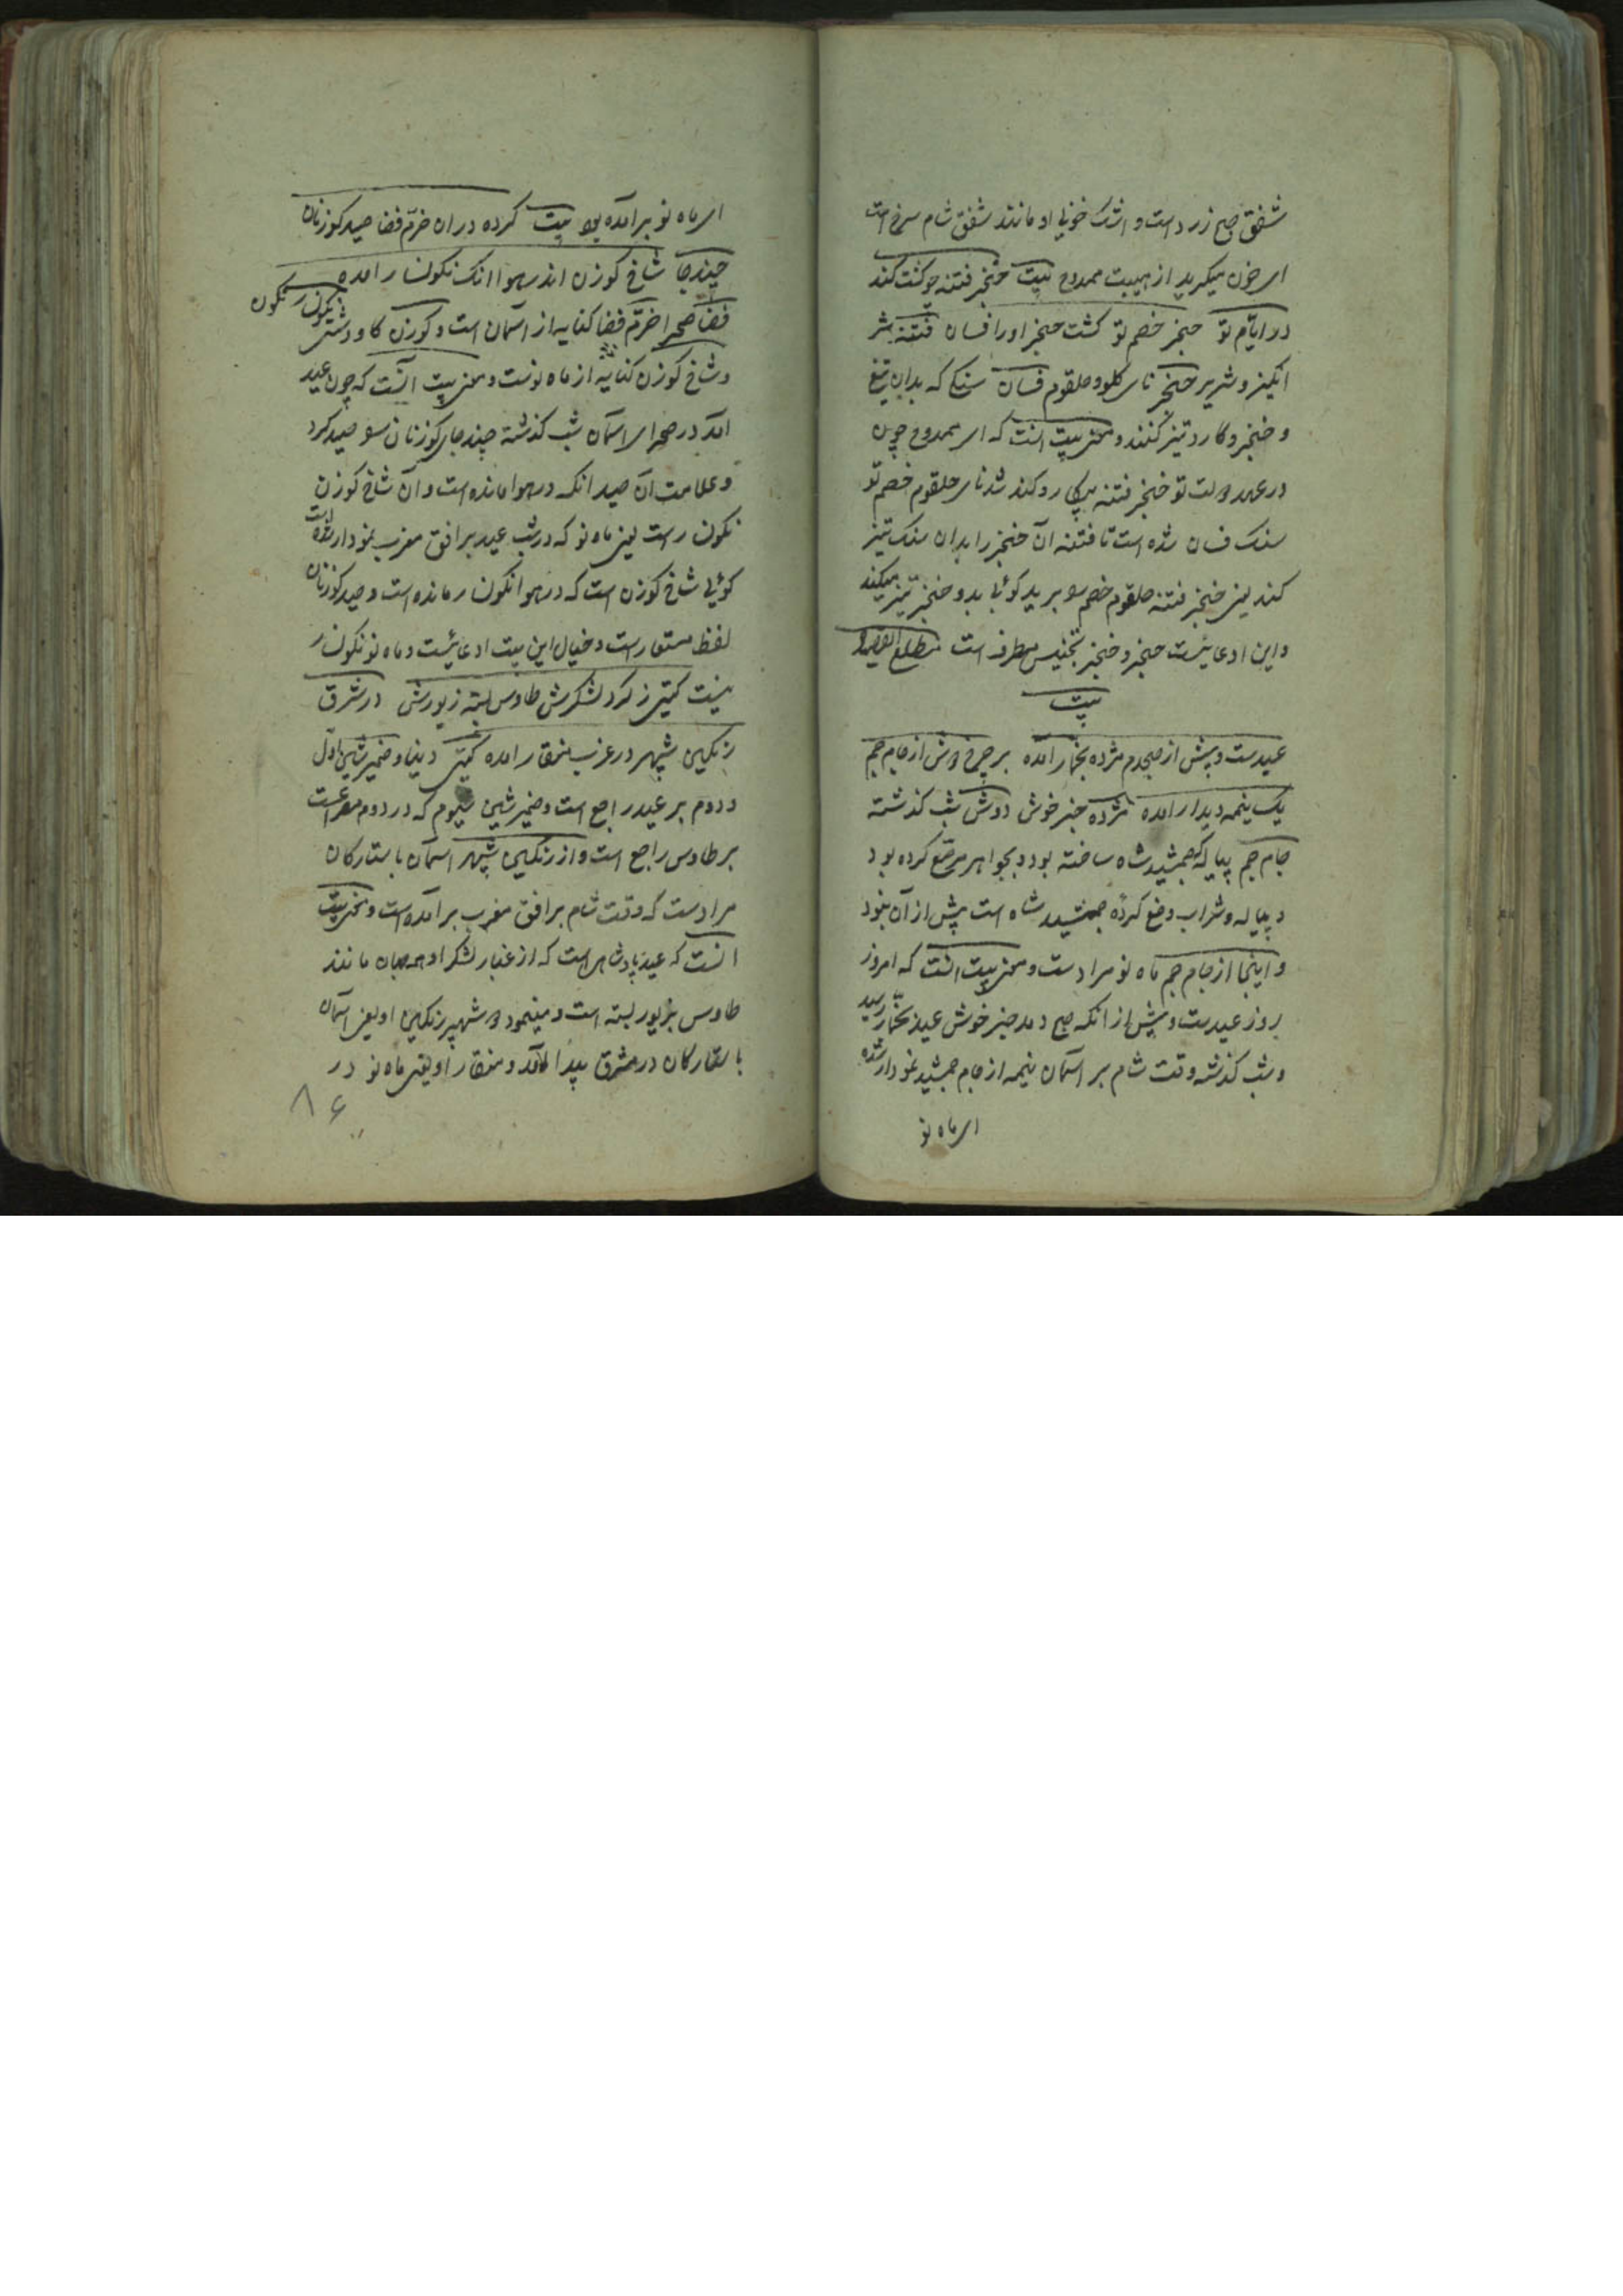 شفق صبح زرد است و اشک خونی او مانند شفق شام سرخ است
ای خون میگرید از هیبت ممدوح بیت خنجر فتنه چو کشت کند
در ایام تو حنجر خصم تو کشت حنجر او را فسان فتنه شر
انکیز و شریر حنجر نای کلو و حلقوم فسان سنکی که بدان تیغ
و خنجر و کارد تیز کنند و معنی بیت انست که ای ممدوح چون
در عهد دولت تو خنجر فتنه بیکار و کند شد نای حلقوم خصم تو
سنک فسان شده است تا فتنه آن خنجر را بدان سنک تیز
کند یعنی خنجر فتنه حلقوم خصم تو برید کوئی بدو خنجر تیز میکند
و این ادعائیست حنجر و خنجر تجنیس مطرف است مطلع القصیده
بیت
عید ست و پیش از صبحدم مژده بخمار آمده بر چرخ دوش از جام جم
یک نیمه دیدار آمده مژده خبر خوش دوش شب کذشته
جام جم پیاله که جمشید شاه ساخته بود و بجواهر مرصع کرده بود
و پیاله و شراب وضع کرده جمشید شاه است پیش از آن نبود
و اینجا از جام جم ماه نو مراد ست و معنی بیت انست که امروز
روز عید ست و پیش از انکه صبح دمد خبر خوش عید بخمار رسید
و شب کذشته وقت شام بر آسمان نیمه از جام جمشید نمودار شده
ای ماه نو
ای ماه نو برآمده بود بیت کرده در ان خرم فضا صید کوزنان
چند جا شاخ کوزن اندر هوا انک نکونسار آمده
نکونسار نکون
فضا صحرا خرم فضا کنایه از آسمان است و کوزن کاو دشتی
و شاخ کوزن کنایه از ماه نوست و معنی بیت آنست که چون عید
آمد در صحرای آسمان شب کذشته چند جای کوزنان صید کرد
و علامت آن صید انکه در هوا مانده است و آن شاخ کوزن
نکونسار است یعنی ماه نو که در شب عید بر افق مغرب نمودار شده است
کوئی شاخ کوزن است که در هوا نکونسار مانده است و صید کوزنان
لفظ مستعار ست و خیال این بیت ادعائیست و ماه نو نکونسار
نیست کیتی ز کرد لشکرش طاوس بسته زیورش در شرق
رنکین شهپر در غرب منقار آمده کیتی دنیا و ضمیر شین اول
و دوم بر عید راجع است و ضمیر شین سیوم که در دوم مصرعست
بر طاوس راجع است و از رنکین شهپر اسمان با ستارکان
مراد ست که وقت شام بر افق مغرب برآمده است و معنی بیت
انست که عید پادشاهی است که از غبار لشکر او همه جهان مانند
طاوس بزیور بسته است و مینمود و شهپر رنکین او یعنی آسمان
با ستارکان در مشرق پیدا آمد و منقار او یعنی ماه نو در
۸۶